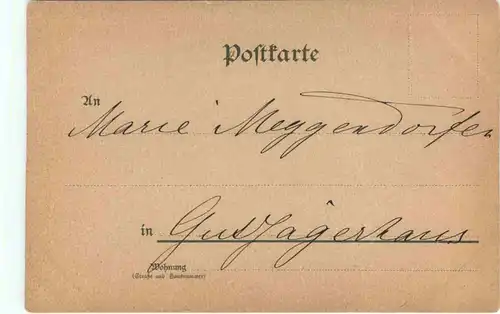 Postkarte
An
Marie Meggendorfer
in Gut Jägerhaus
Wohnung
(Straße und Hausnummer)